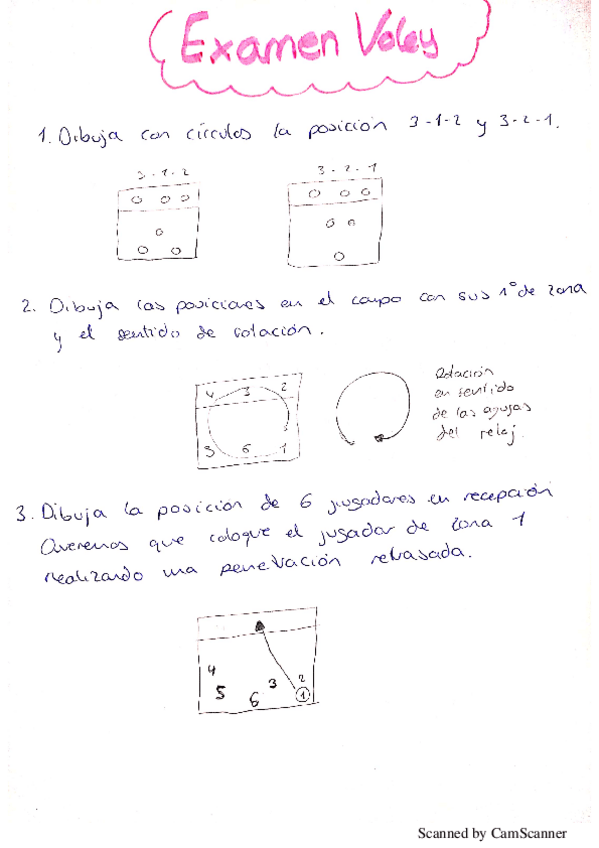 Examen Voley
1. Dibuja con círculos la posición 3-1-2 y 3-2-1.
3-1-2
3-2-1
2. Dibuja las posiciones en el campo con sus nº de zona
y el sentido de rotación.
4 3 2
5 6 1
Rotación
en sentido
de las agujas
del reloj.
3. Dibuja la posición de 6 jugadores en recepción
Queremos que coloque el jugador de zona 1
realizando una penetración retrasada.
4
5
6
3
2
1
Scanned by CamScanner